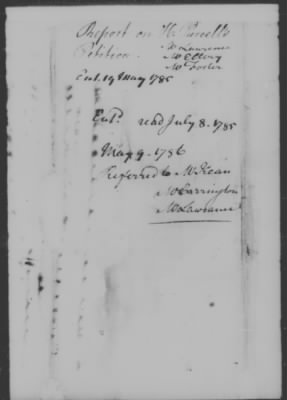 Report on H. Purcell's
Petition.
Mr Lawrence
Mr Ellery
Mr Foster
Ent. 19 May 1785
Entd. read July 8. 1785
May 9. 1786
Referred to Mr Kean
Mr Harrington
Mr Lawrance